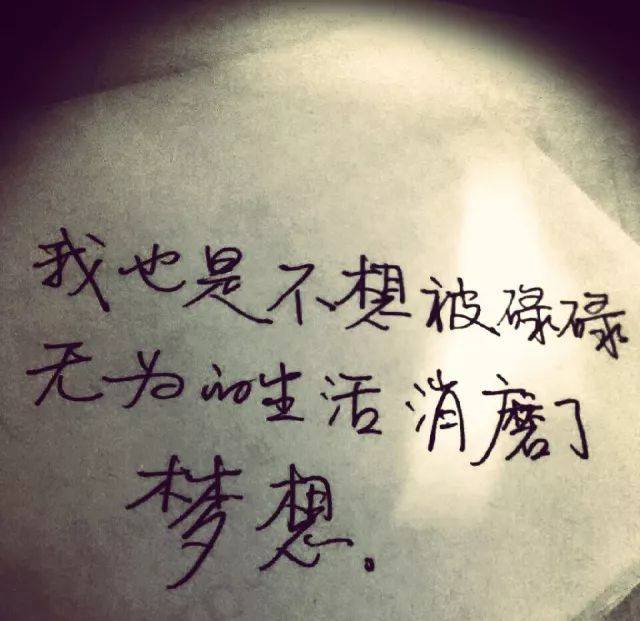 我也是不想被碌碌
无为的生活消磨了
梦想.